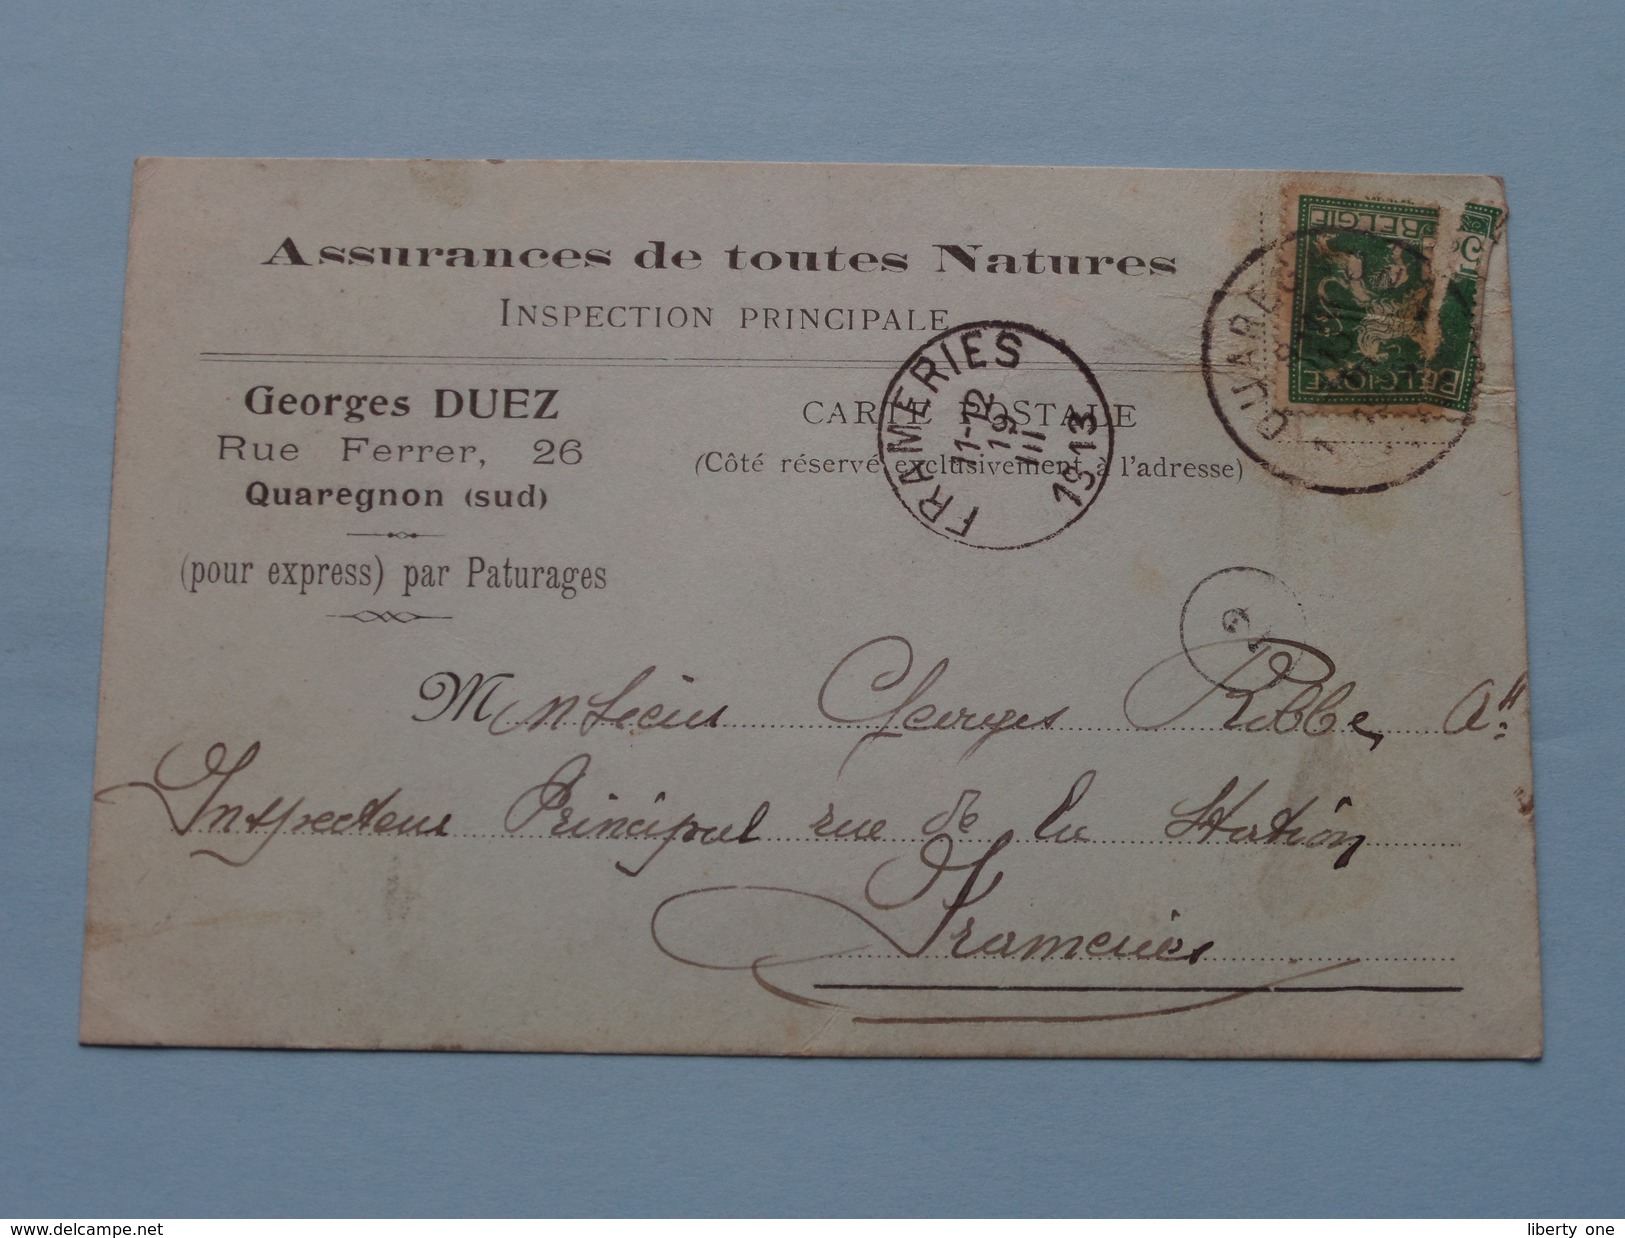 Assurances de toutes Natures
INSPECTION PRINCIPALE
Georges DUEZ
Rue Ferrer, 26
Quaregnon (sud)
(pour express) par Paturages
CARTE POSTALE
(Côté réservé exclusivement à l'adresse)
FRAMERIES
11-12
19
III
1913
QUAREG
BELGIË
BELGIQUE
5
2
Monsieur Georges Robbe,
Inspecteur Principal rue de la Station
Frameries
delcampe.net
liberty_one